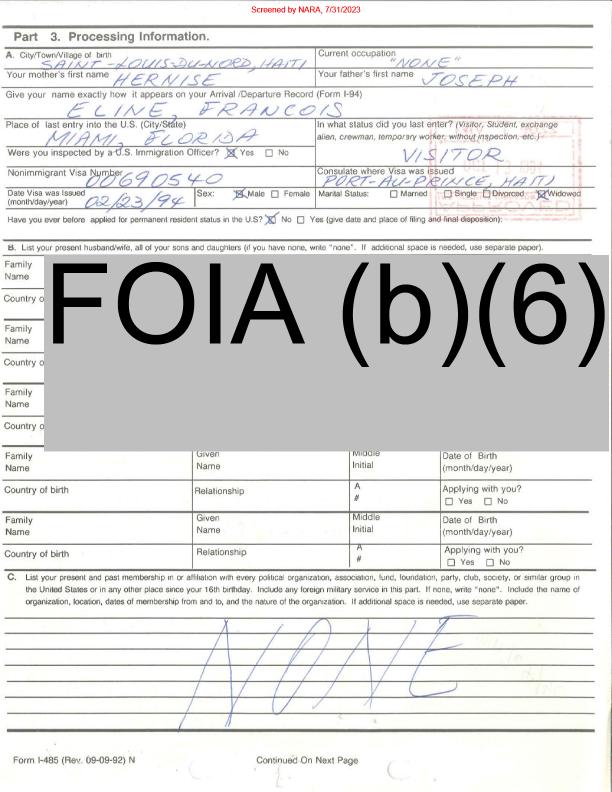 Screened by NARA, 7/31/2023
Part 3. Processing Information.
A. City/Town/Village of birth SAINT-LOUIS-DU-NORD, HAITI
Current occupation "NONE"
Your mother's first name HERNISE
Your father's first name JOSEPH
Give your name exactly how it appears on your Arrival/Departure Record (Form I-94)
ELINE, FRANCOIS
Place of last entry into the U.S. (City/State)
MIAMI, FLORIDA
In what status did you last enter? (Visitor, Student, exchange
alien, crewman, temporary worker, without inspection, etc.)
VISITOR
Were you inspected by a U.S. Immigration Officer? ☒ Yes ☐ No
Nonimmigrant Visa Number 00690540
Consulate where Visa was issued
PORT-AU-PRINCE, HAITI
Date Visa was Issued
(month/day/year) 02/23/94
Sex: ☒ Male ☐ Female
Marital Status: ☐ Married ☐ Single ☐ Divorced ☒ Widowed
Have you ever before applied for permanent resident status in the U.S? ☒ No ☐ Yes (give date and place of filing and final disposition):
B. List your present husband/wife, all of your sons and daughters (if you have none, write "none". If additional space is needed, use separate paper).
FOIA (b)(6)
Family
Name
Country o
Family
Name
Country o
Family
Name
Country o
Family
Name
Given
Name
Middle
Initial
Date of Birth
(month/day/year)
Country of birth
Relationship
A
#
Applying with you?
☐ Yes ☐ No
Family
Name
Given
Name
Middle
Initial
Date of Birth
(month/day/year)
Country of birth
Relationship
A
#
Applying with you?
☐ Yes ☐ No
C. List your present and past membership in or affiliation with every political organization, association, fund, foundation, party, club, society, or similar group in
the United States or in any other place since your 16th birthday. Include any foreign military service in this part. If none, write "none". Include the name of
organization, location, dates of membership from and to, and the nature of the organization. If additional space is needed, use separate paper.
NONE
Form I-485 (Rev. 09-09-92) N
Continued On Next Page